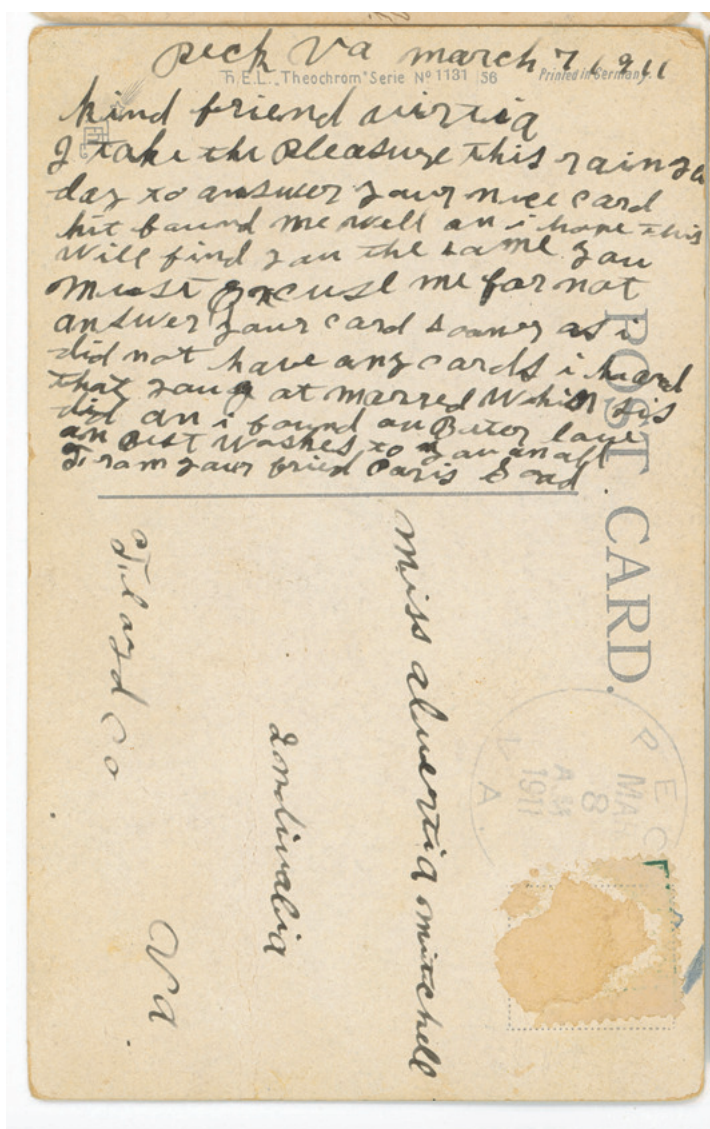 peck Va march 7 1911
Th. E.L. "Theochrom" Serie Nº 1131 56 Printed in Germany.
kind friend virtia
I take the Pleasure this rainy
day to answer your nice card
hit found me well an i hope this
will find you the same you
must Excuse me for not
answer your card sooner as i
did not have any cards i heard
that you at marred Which sis
did an i found an love
an Best Washes to you an all
From your fried Paris
POST CARD.
Miss alvertia mitchell
indivalia
Floyd Co
Va
PECK
MAR
8
A.M
1911
VA.